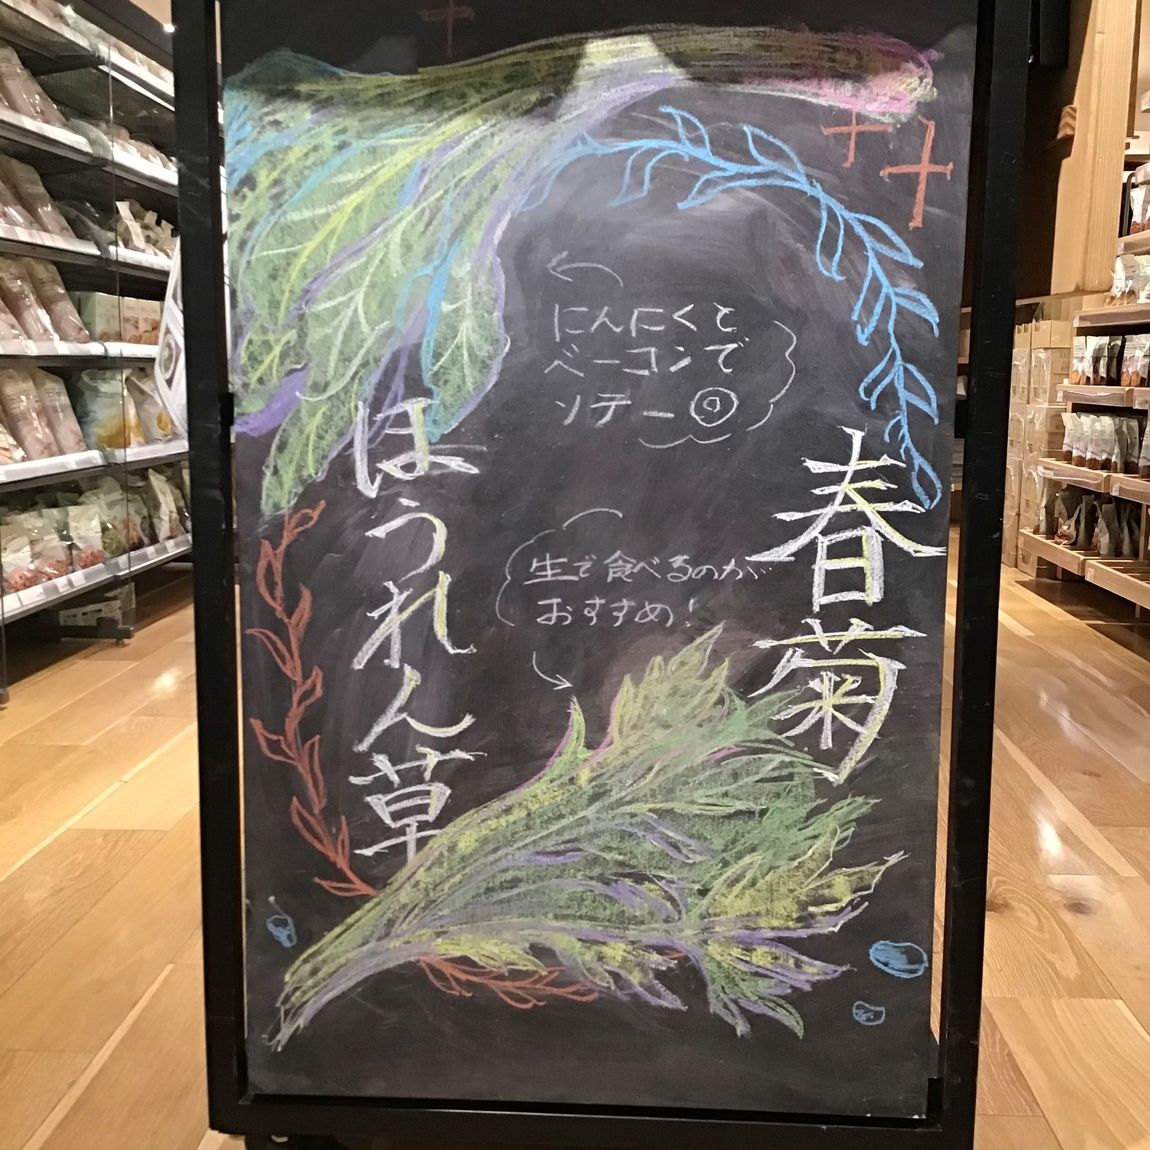 春菊
にんにくと
ベーコンで
ソテー◎
生で食べるのが
おすすめ!
ほうれん草